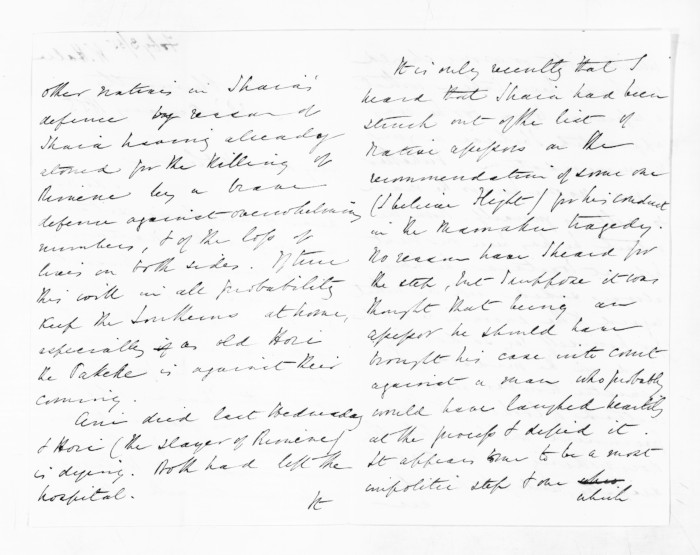 other natives in Ihaia's
defence by reason of
Ihaia having already
atoned for the killing of
Rimene by a brave
defence against overwhelming
numbers, & of the loss of
lives on both sides. If true
this will in all probability
keep the Southerns at home,
especially if as old Hori
the Pakeke is against their
coming.
Ani died last Wednesday
& Hori (the slayer of Rimene)
is dying. Both had left the
hospital.
It
It is only recently that I
heard that Ihaia had been
struck out of the list of
native assessors on the
recommendation of some one
(I believe Flight) for his conduct
in the Mamaku tragedy.
No reason have I heard for
the step, but I suppose it was
thought that being an
assessor he should have
brought his case into court
against a man who probably
would have laughed heartily
at the process & defied it.
It appears to me to be a most
impolitic step & one who
which